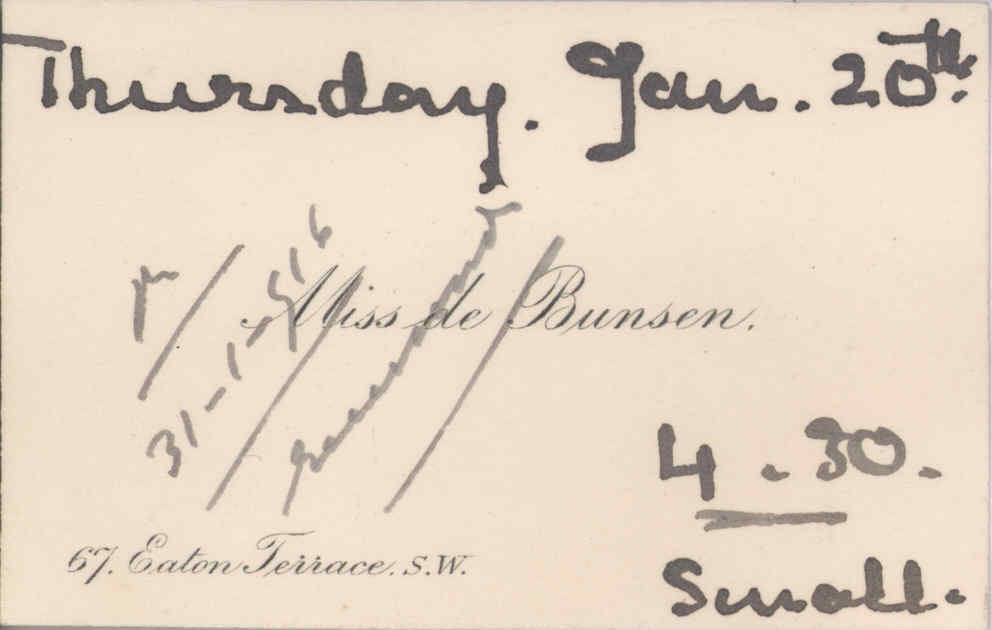 Thursday. Jan. 20th.
31-1-516
Miss de Bunsen.
4.30.
67. Eaton Terrace. S.W.
Small.